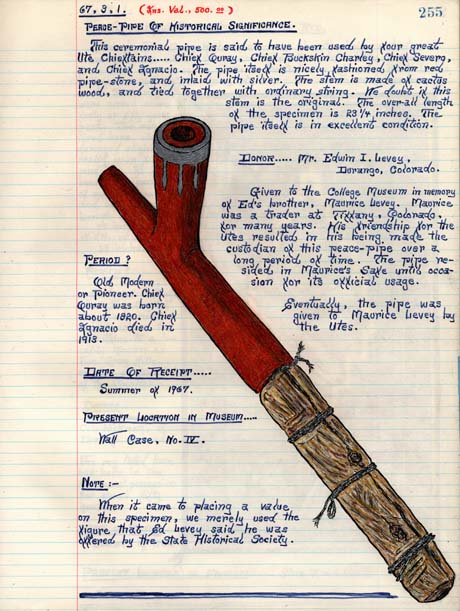 67.9.1. (Ins. Val., 500.00) 255
Peace-Pipe Of Historical Significance.
This ceremonial pipe is said to have been used by four great
Ute Chieftains..... Chief Ouray, Chief Buckskin Charley, Chief Severo,
and Chief Ignacio. The pipe itself is nicely fashioned from red
pipe-stone, and inlaid with silver. The stem is made of cactus
wood, and tied together with ordinary string. We doubt if this
stem is the original. The over-all length
of the specimen is 23 1/4 inches. The
pipe itself is in excellent condition.
Donor..... Mr. Edwin I. Levey,
Durango, Colorado.
Given to the College Museum in memory
of Ed's brother, Maurice Levey. Maurice
was a trader at Tiffany, Colorado,
for many years. His friendship for the
Utes resulted in his being made the
custodian of this peace-pipe over a
long period of time. The pipe re-
sided in Maurice's Safe until occa-
sion for its official usage.
Eventually, the pipe was
given to Maurice Levey by
the Utes.
Period?
Old Modern
or Pioneer. Chief
Ouray was born
about 1820. Chief
Ignacio died in
1913.
Date Of Receipt.....
Summer of 1967.
Present Location in Museum....
Wall Case, No. IV.
Note:-
When it came to placing a value
on this specimen, we merely used the
figure that Ed Levey said he was
offered by the State Historical Society.